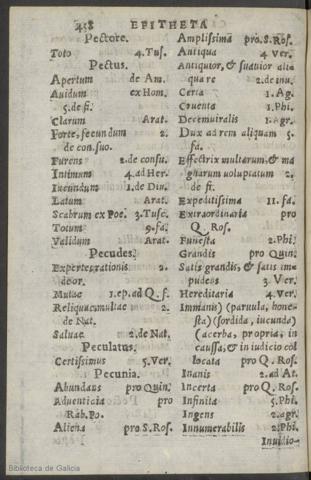 438 EPITHETA
Pectore.
Toto 4.Tus.
Pectus.
Apertum de Am.
Auidum ex Hom.
5.de fi.
Clarum Arat.
Forte, fecundum 2.
de consuo.
Furens 2.de consu.
Intimum 4.ad Her.
Iucundum 1.de Diu.
Latum Arat.
Scabrum ex Poe. 3.Tusc.
Totum 9.fa.
Validum Arat.
Pecudes.
Expertes rationis 2.
deor.
Mutae 1.ep.ad Q.f.
Reliquae multae 2.
de Nat.
Saluae 2.de Nat.
Peculatus.
Certissimus 5.Ver.
Pecunia.
Abundans pro Quin.
Aduenticia pro
Rab.Po.
Aliena pro S.Ros.
Amplissima pro.S.Ros.
Antiqua 4.Ver.
Antiquior, & suauior alia
qua re 2.de inu.
Certa 1.Ag.
Cruenta 1.Phi.
Decemuiralis 1.Agr.
Dux ad rem aliquam 5.
fa.
Effectrix multarum, & ma
gnarum uoluptatum 2.
de fi.
Expeditissima 11.fa.
Extraordinaria pro
Q. Ros.
Funesta 2.Phi.
Grandis pro Quin.
Satis grandis, & satis im=
pudens 3.Ver.
Hereditaria 4.Ver.
Immanis) (paruula, hone=
sta) (sordida, iucunda)
(acerba, propria, in
caussa, & in iudicio col
locata pro Q. Ros.
Inanis 2.ad At.
Incerta pro Q. Ros.
Infinita 5.Phi.
Ingens 2.agr.
Innumerabilis 2.Phi.
Inuidio=
Biblioteca de Galicia